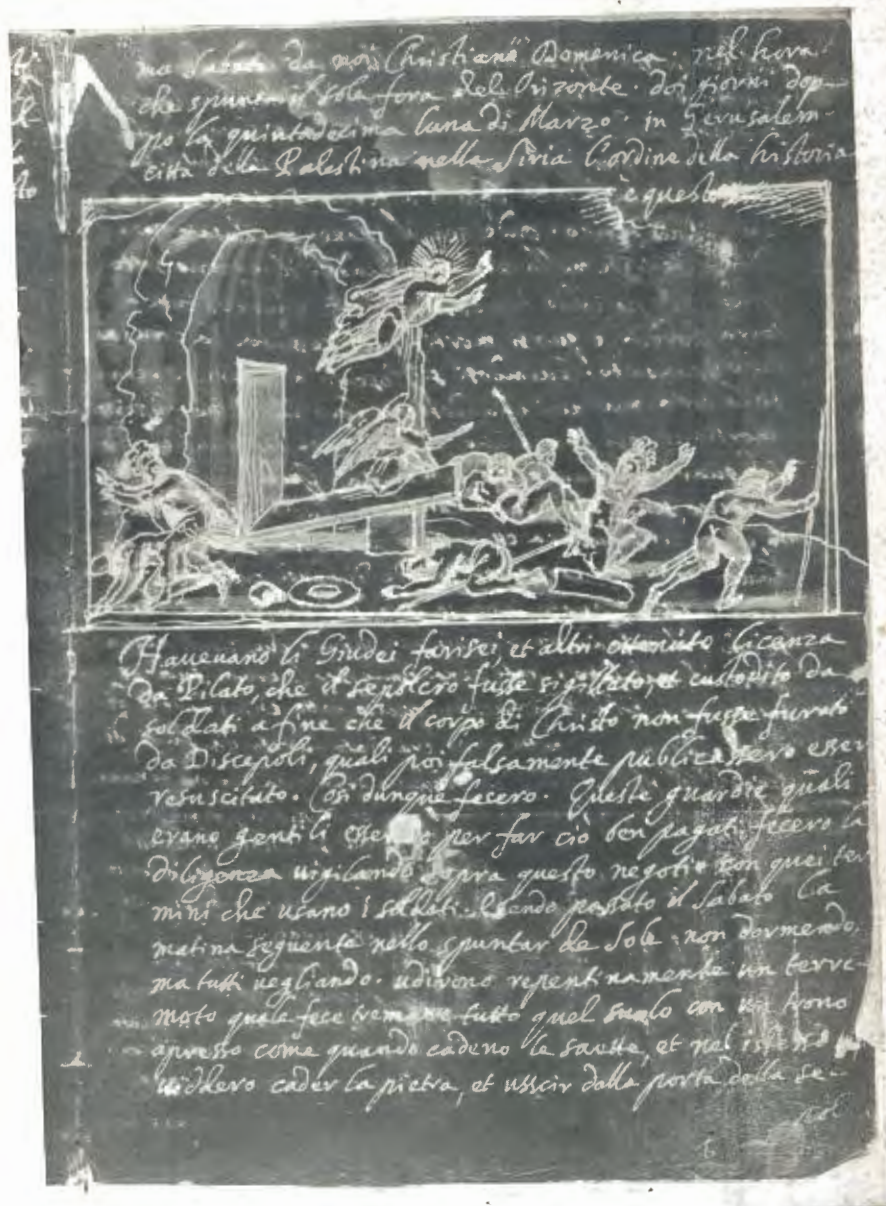 ma Sabato da noi Christiani Domenica. nel hora
che spunta il sole fora del Orizonte. doi giorni dop-
po la quintadecima luna di Marzo. in Gerusalem-
città della Palestina nella Siria l'ordine della historia
è questo
Haueuano li Giudei farisei, et altri ottenuto licenza
da Pilato, che il sepolcro fusse sigillato, et custodito da
soldati a fine che il corpo di Christo non fusse furato
da Discepoli, quali poi falsamente publicassero esser
resuscitato. Cosi dunque fecero. Queste guardie quali
erano gentili essendo per far ciò ben pagati fecero la
diligenza uigilando sopra questo negotio con quei ter
mini che usano i soldati. Essendo passato il Sabato la
matina seguente nello spuntar de Sole. non dormendo,
ma tutti uegliando. udirono repentinamente un terre-
moto quale fece tremare tutto quel suolo con un trono
apresso come quando cadeno le saette, et nel istesso
uiddero cader la pietra, et usscir dalla porta della se-
pol